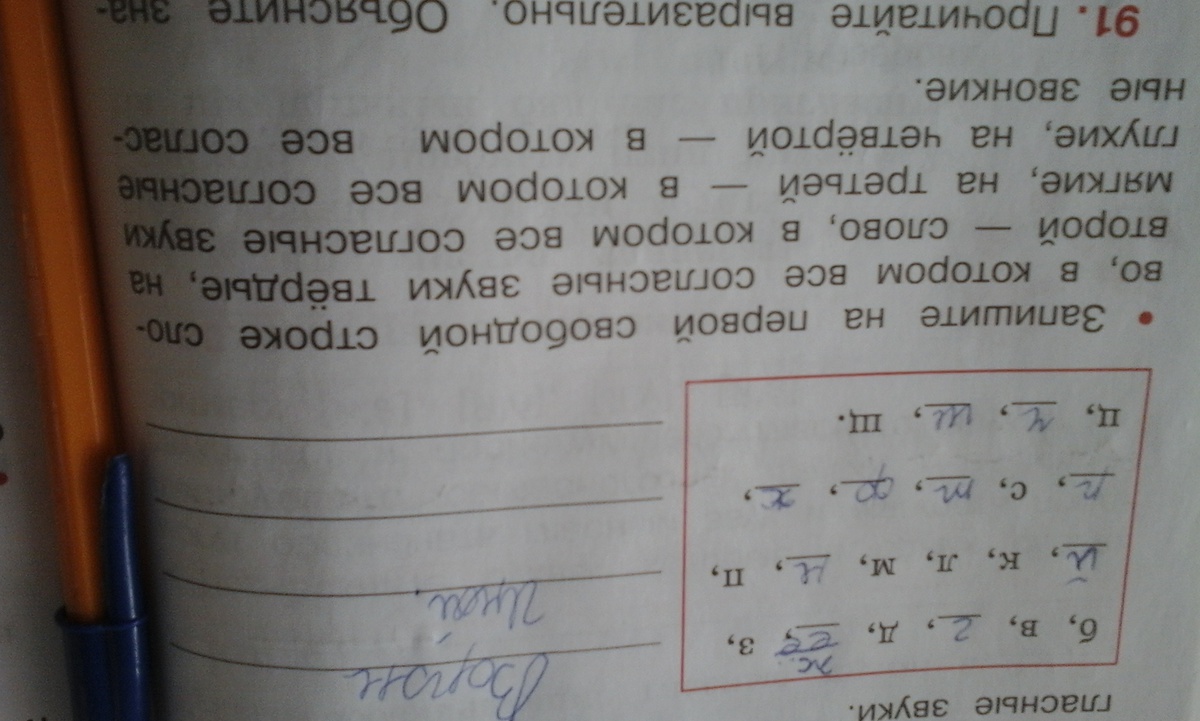 гласные звуки.
б, в, г, д, ж, з,
й, к, л, м, н, п,
р, с, т, ф, х,
ц, ч, ш, щ.
Ворон
Иней.
• Запишите на первой свободной строке сло-
во, в котором все согласные звуки твёрдые, на
второй — слово, в котором все согласные звуки
мягкие, на третьей — в котором все согласные
глухие, на четвёртой — в котором все соглас-
ные звонкие.
91. Прочитайте выразительно. Объясните зна-